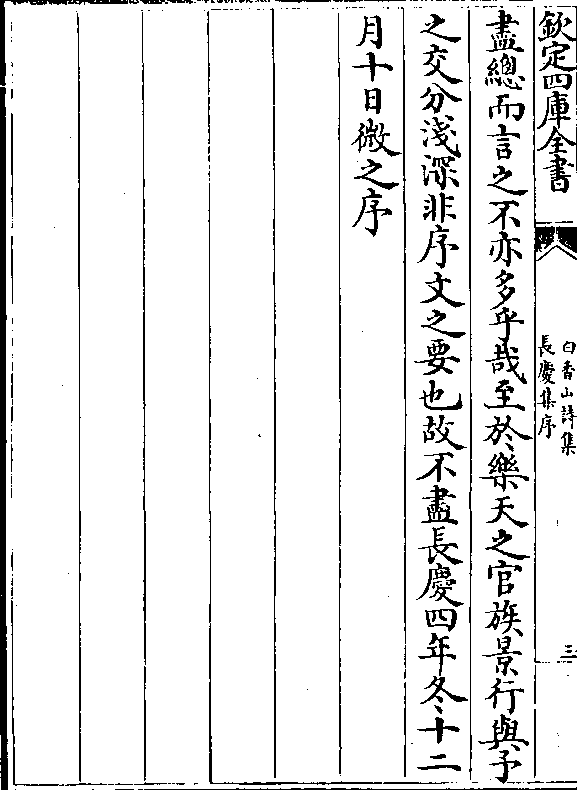 欽定四庫全書
白香山詩集
長慶集序
三
盡總而言之不亦多乎哉至於樂天之官族景行與予
之交分淺深非序文之要也故不盡長慶四年冬十二
月十日微之序